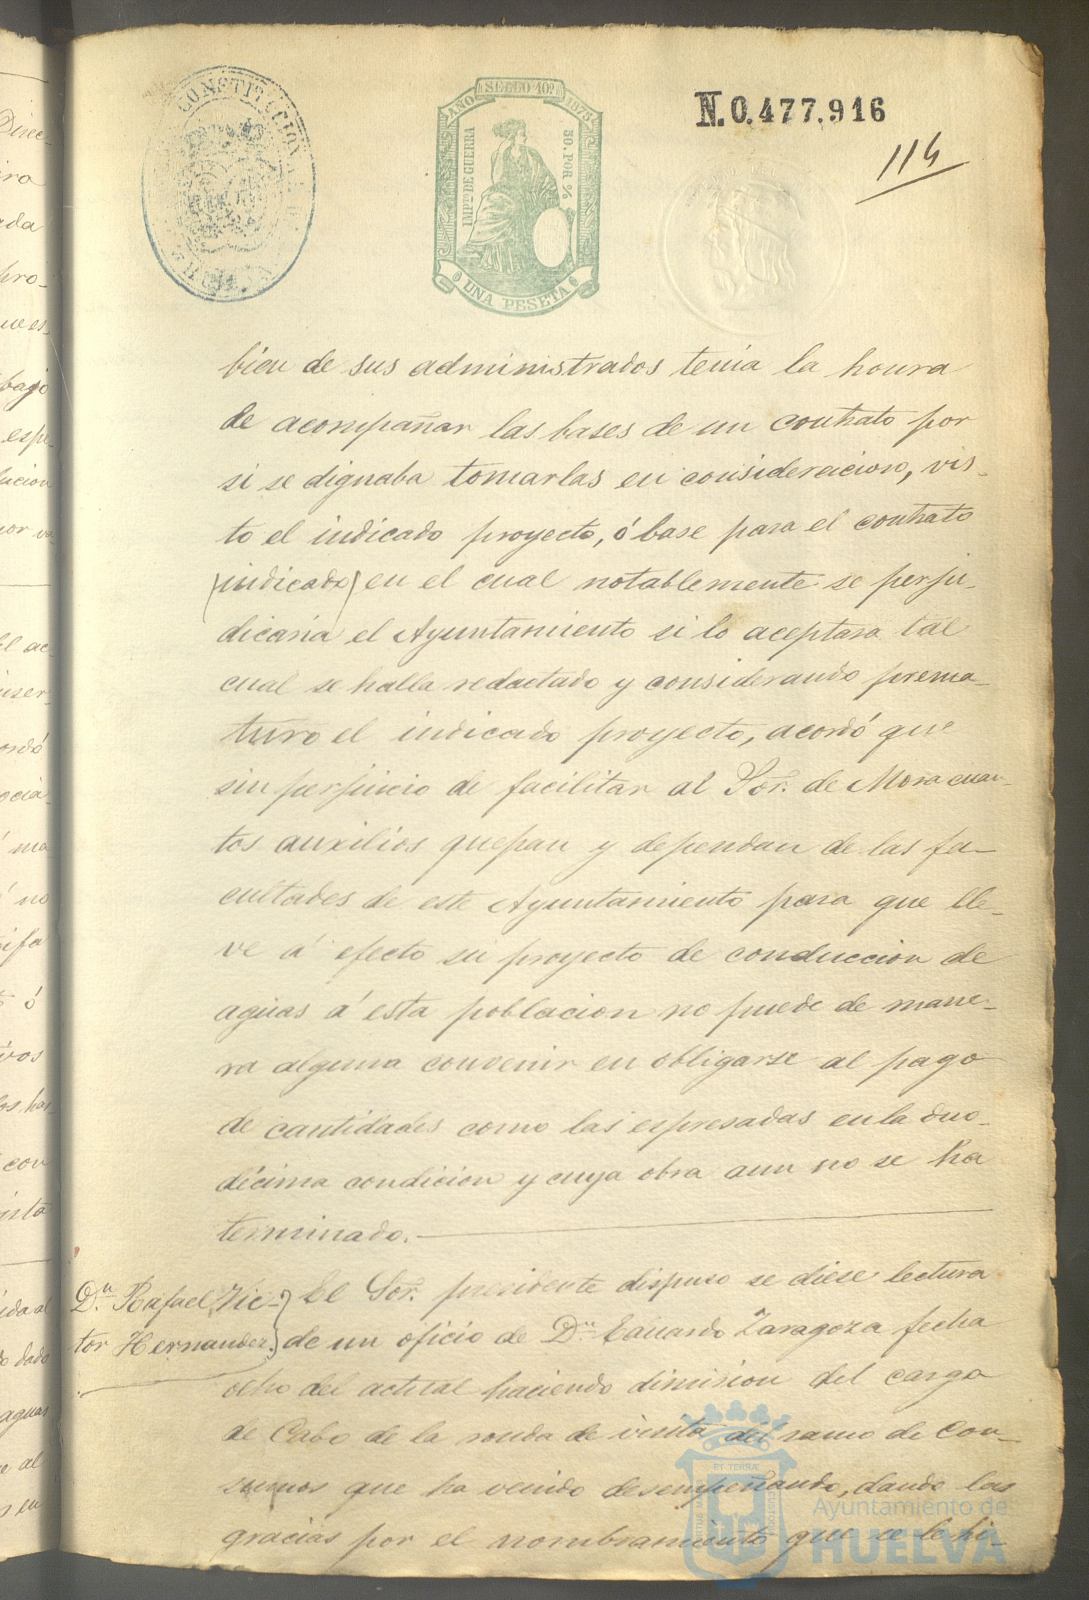 CONSTITUCION
HUELVA
SELLO 10º
AÑO 1875
IMPTO DE GUERRA
50. POR %
UNA PESETA
N.0.477.916
114
bien de sus administrados tenia la honra
de acompañar las bases de un contrato por
si se dignaba tomarlas en consideracion, vis-
to el indicado proyecto, ó base para el contrato
(indicado) en el cual notablemente se perju-
dicaria el Ayuntamiento si lo aceptara tal
cual se halla redactado y considerando prema-
turo el indicado proyecto, acordó que
sin perjuicio de facilitar al Sor. de Mora cuan-
tos auxilios quepan y dependan de las fa-
cultades de este Ayuntamiento para que lle-
ve á efecto su proyecto de conduccion de
aguas á esta poblacion no puede de mane-
ra alguna convenir en obligarse al pago
de cantidades como las espresadas en la duo-
décima condicion y cuya obra aun no se ha
terminado.
Dn. Rafael Vic-
tor Hernandez
El Sor. presidente dispuso se diese lectura
de un oficio de Dn. Eduardo Zaragoza fecha
ocho del actual haciendo dimision del cargo
de Cabo de la ronda de visita del ramo de Con-
sumos que ha venido desempeñando, dando las
gracias por el nombramiento que se le hi-
Ayuntamiento de
HUELVA